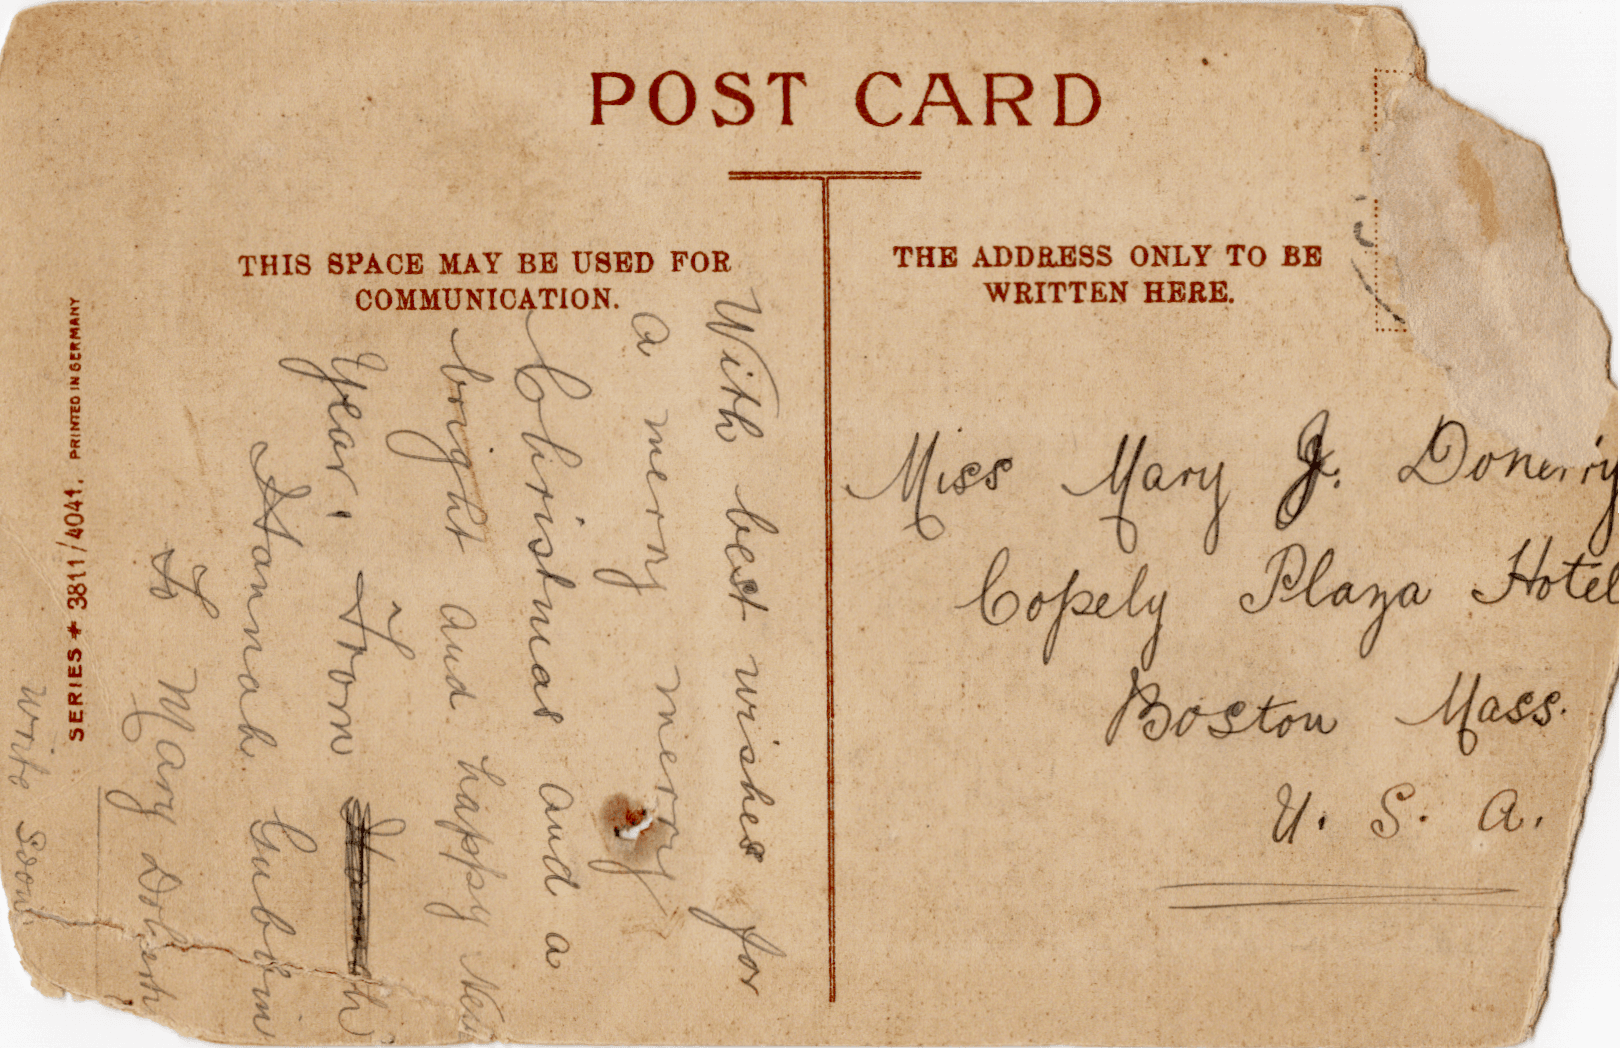 POST CARD
THIS SPACE MAY BE USED FOR
COMMUNICATION.
THE ADDRESS ONLY TO BE
WRITTEN HERE.
SERIES 3811/4041. PRINTED IN GERMANY
With best wishes for
a merry merry
Christmas and a
bright and happy New
Year. From
Hannah
To Mary
write soon
Miss Mary J.
Copely Plaza Hotel
Boston Mass.
U. S. A.